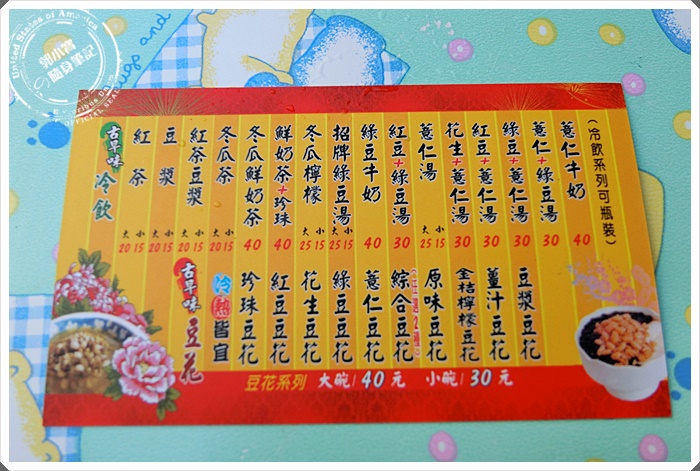 古早味
冷飲
紅茶 大20 小15
豆漿 大20 小15
紅茶豆漿 大20 小15
冬瓜茶 大20 小15
冬瓜鮮奶茶 40
鮮奶茶+珍珠 40
冬瓜檸檬 大25 小15
招牌綠豆湯 大25 小15
綠豆牛奶 40
紅豆+綠豆湯 30
薏仁湯 大25 小15
花生+薏仁湯 30
紅豆+薏仁湯 30
綠豆+薏仁湯 30
薏仁+綠豆湯 30
薏仁牛奶 40
(冷飲系列可瓶裝)
古早味
豆花
冷熱皆宜
珍珠豆花
紅豆豆花
花生豆花
綠豆豆花
薏仁豆花
綜合豆花
(任選2種)
原味豆花
金桔檸檬豆花
薑汁豆花
豆漿豆花
豆花系列 大碗/40元 小碗/30元
United States of America
郭小簪
隨身筆記
OFFICIAL SEAL
and